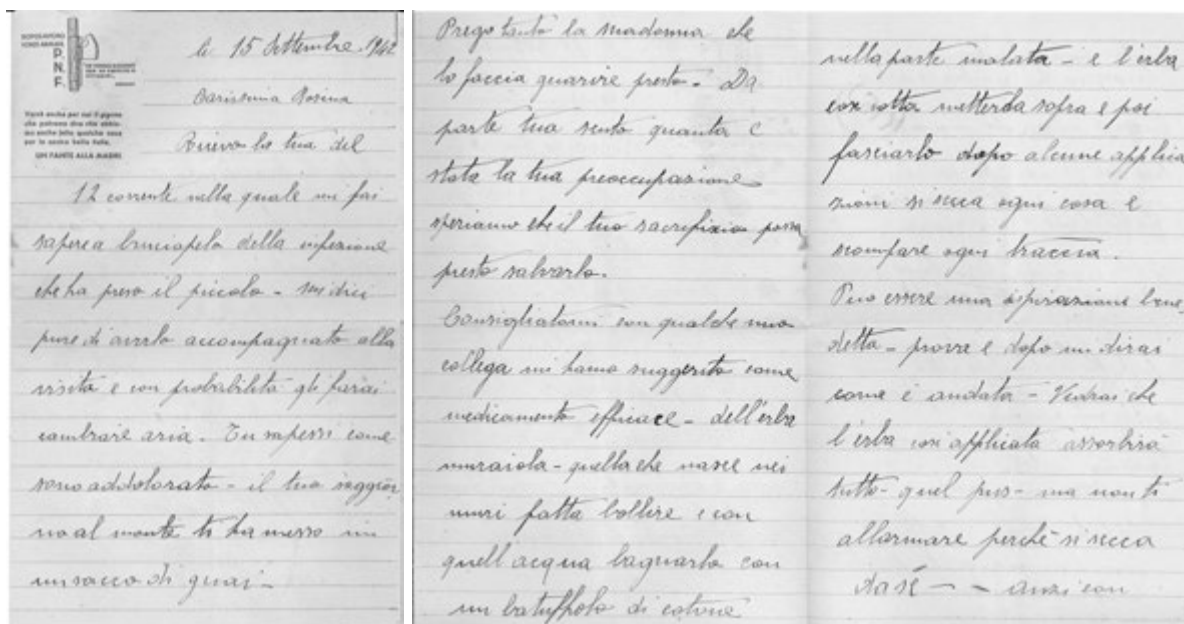 DOPOLAVORO
FORZE ARMATE
P.
N.
F.
UN FANTE ALLA MADRE
li 15 Settembre 1942
Carissima Rosina
Ricevo la tua del
12 corrente nella quale mi fai
sapere a bruciapelo della infezione
che ha preso il piccolo - mi dici
pure di averlo accompagnato alla
visita e con probabilità gli farai
cambiare aria. Tu sapessi come
sono addolorato - il tuo soggior
no al monte ti ha messo in
un sacco di guai -
Prego tanto la madonna che
lo faccia guarire presto - Da
parte tua sento quanta è
stata la tua preoccupazione
speriamo che il tuo sacrifizio possa
presto salvarlo.
Consigliatomi con qualche mio
collega mi hanno suggerito come
medicamento efficace - dell'erba
muraiola - quella che nasce nei
muri fatta bollire e con
quell'acqua bagnarlo con
un batuffolo di cotone
nella parte malata - e l'erba
così cotta metterla sopra e poi
fasciarlo dopo alcune applica
zioni si secca ogni cosa e
scompare ogni traccia.
Può essere una ispirazione bene
detta - prova e dopo mi dirai
come è andata - Vedrai che
l'erba così applicata assorbirà
tutto - quel pus - ma non ti
allarmare perchè si secca
da sé - - anzi con